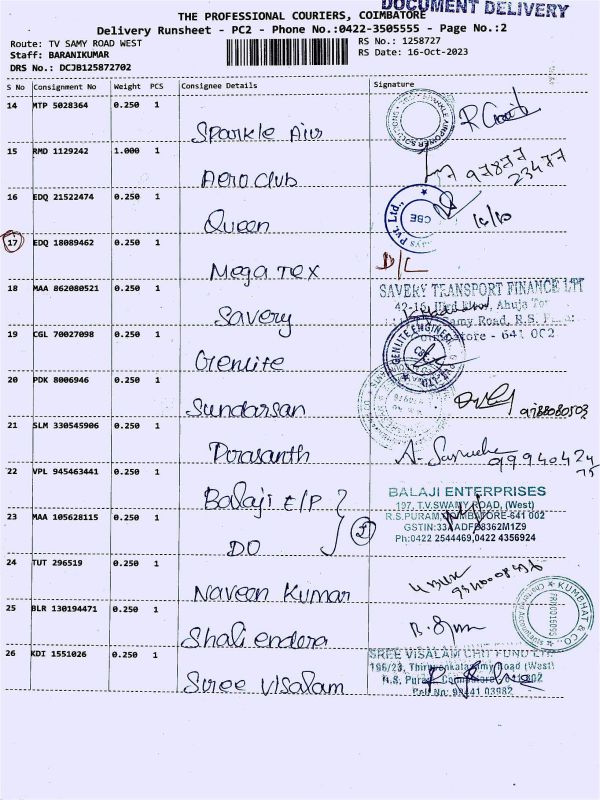 DOCUMENT DELIVERY
THE PROFESSIONAL COURIERS, COIMBATORE
Delivery Runsheet - PC2 - Phone No.:0422-3505555 - Page No.:2
Route: TV SAMY ROAD WEST
RS No.: 1258727
Staff: BARANIKUMAR
RS Date: 16-Oct-2023
DRS No.: DCJB125872702
S No Consignment No Weight PCS Consignee Details Signature
14 MTP 5028364 0.250 1
Sparkle Air
15 RMD 1129242 1.000 1
Aero club
97877
23477
16 EDQ 21522474 0.250 1
Queen
CBE
16/10
17 EDQ 18089462 0.250 1
Mega Tex
D/L
18 MAA 862080521 0.250 1
Savery
SAVERY TRANSPORT FINANCE
42-16, Ahuja
Samy Road, R.S.
641 002
19 CGL 70027098 0.250 1
Genlite
GENLITE ENGINEE
20 PDK 8006946 0.250 1
Sundarsan
9788080503
21 SLM 330545906 0.250 1
Porasanth
22 VPL 945463441 0.250 1
Balaji E/P
BALAJI ENTERPRISES
197, T.V.SWAMY ROAD, (West)
R.S.PURAM, COIMBATORE-641 002
23 MAA 105628115 0.250 1
DO
Ph:0422 2544469,0422 4356924
24 TUT 296519 0.250 1
Naveen Kumar
25 BLR 130194471 0.250 1
Shaliendera
KUMBHAT & CO
26 KDI 1551026 0.250 1
Sree Visalam
SREE VISALAM CHIT FUND LTD
196/23, Thiruvenkatasamy Road (West)
R.S. Puram, Coimbatore
Cell No: 98441 03982